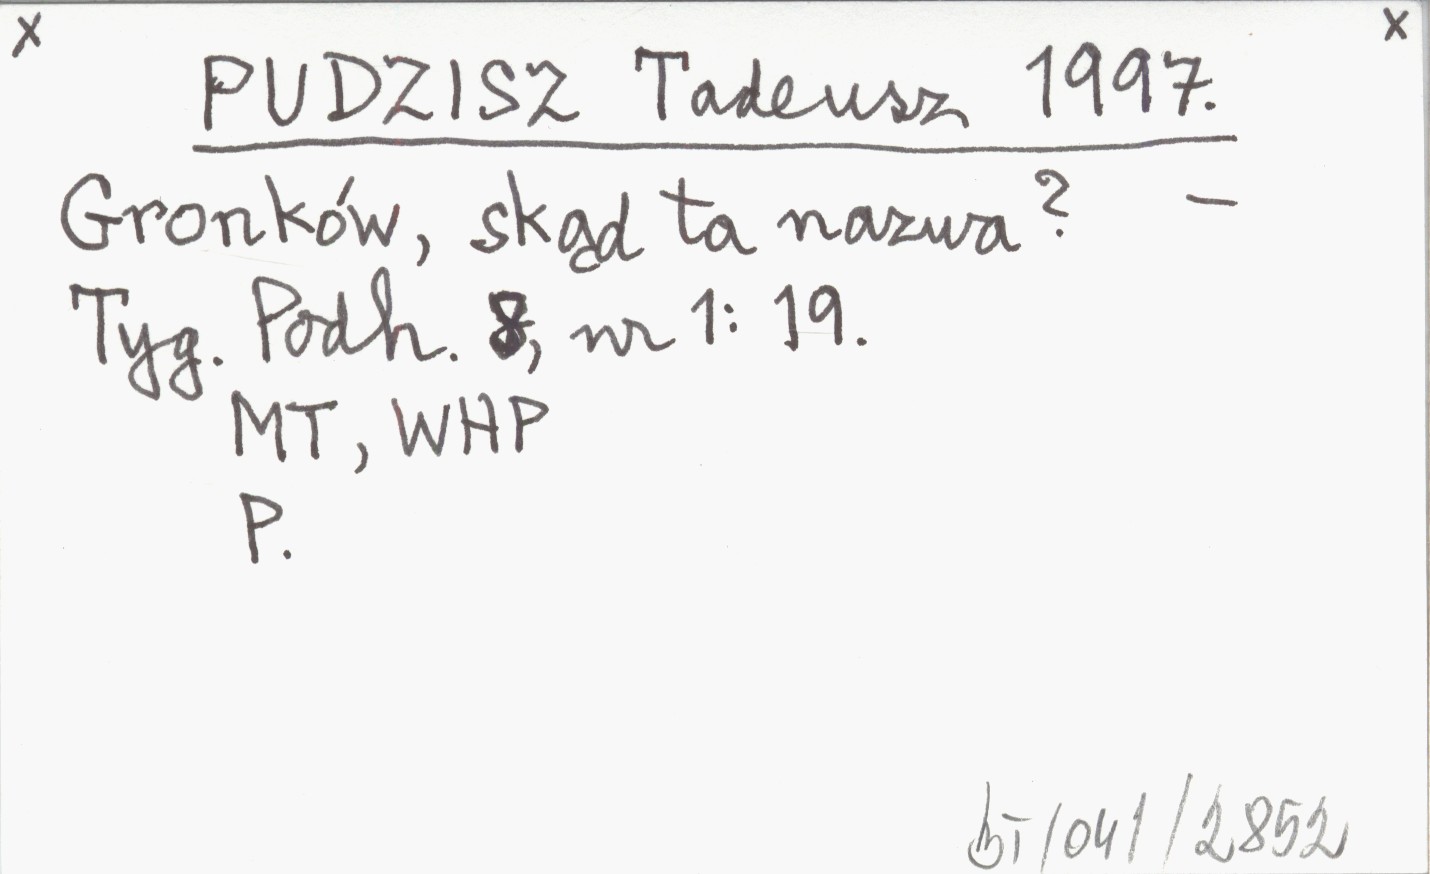 x x
PUDZISZ Tadeusz 1997.
Gronków, skąd ta nazwa? –
Tyg. Podh. 8, nr 1: 19.
MT, WHP
P.
BT/041/2852